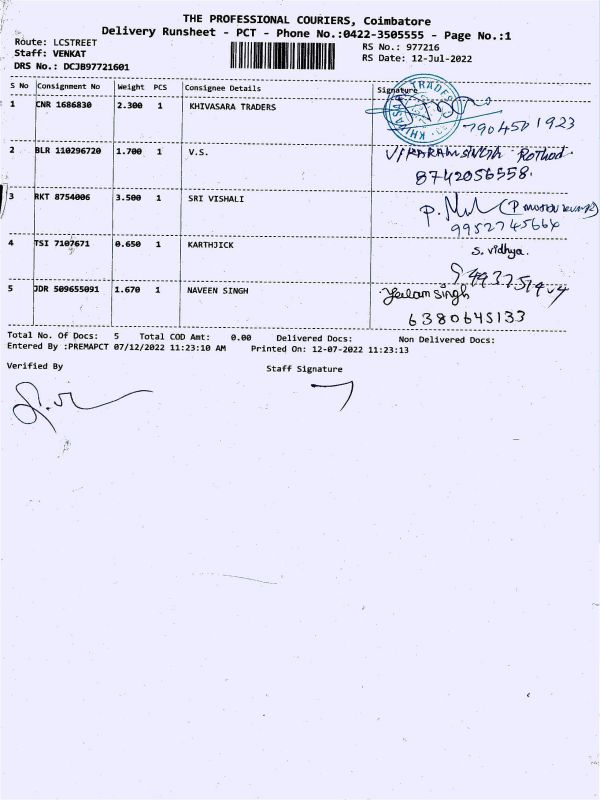 THE PROFESSIONAL COURIERS, Coimbatore
Delivery Runsheet - PCT - Phone No.:0422-3505555 - Page No.:1
Route: LCSTREET RS No.: 977216
Staff: VENKAT RS Date: 12-Jul-2022
DRS No.: DCJB97721601
S No Consignment No Weight PCS Consignee Details Signature
1 CNR 1686830 2.300 1 KHIVASARA TRADERS
7904501923
2 BLR 110296720 1.700 1 V.S.
8742056558.
3 RKT 8754006 3.500 1 SRI VISHALI
9952745664
4 TSI 7107671 0.650 1 KARTHJICK S. Vidhya.
5 JDR 509655091 1.670 1 NAVEEN SINGH
Singh
6380645133
Total No. Of Docs: 5 Total COD Amt: 0.00 Delivered Docs: Non Delivered Docs:
Entered By :PREMAPCT 07/12/2022 11:23:10 AM Printed On: 12-07-2022 11:23:13
Verified By Staff Signature